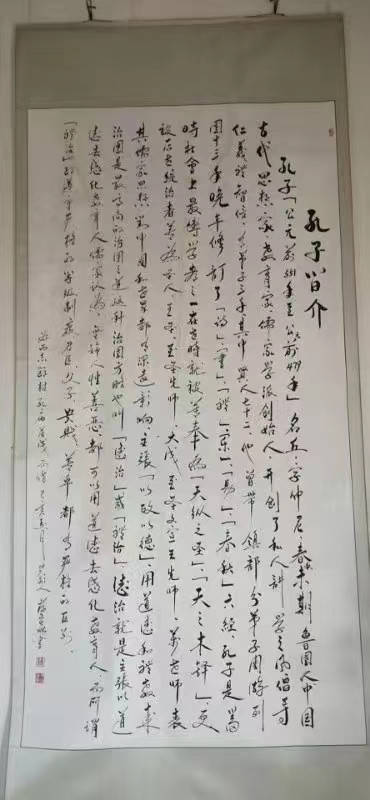 孔子简介
孔子「公元前551年至公元前479年」名丘,字仲尼,春秋末期鲁国人,中国
古代思想家、教育家、儒家学派创始人,开创了私人讲学之风,倡导
仁义礼智信,有弟子三千,其中贤人七十二,他曾带领部分弟子周游列
国十三年,晚年修订了「诗」「书」「礼」「乐」「易」「春秋」六经,孔子是当
时社会上最博学者之一,在世时就被尊奉为「天纵之圣」「天之木铎」,更
被后世统治者尊为圣人、至圣、至圣先师、大成至圣文宣王先师、万世师表
其儒家思想,对中国和世界都有深远影响,主张「以政以德」,用道德和礼教来
治国是最高尚的治国之道,这种治国方略也叫「德治」或「礼治」,德治就是主张以道
德去感化教育人,儒家认为,无论人性善恶,都可以用道德去感化教育人,而所谓
「礼治」的遵守严格的等级制度,君臣父子、贵贱、尊卑都有严格的区别,